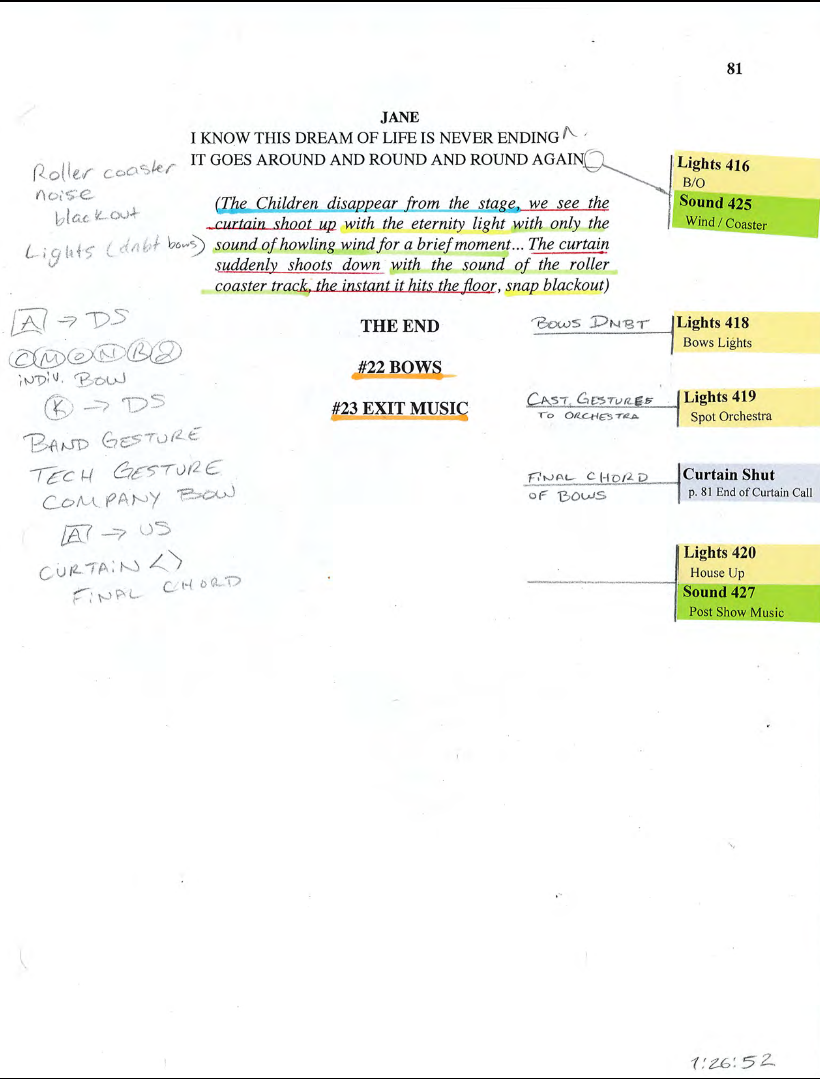 81
JANE
I KNOW THIS DREAM OF LIFE IS NEVER ENDING
IT GOES AROUND AND ROUND AND ROUND AGAIN
(The Children disappear from the stage, we see the
curtain shoot up with the eternity light with only the
sound of howling wind for a brief moment... The curtain
suddenly shoots down with the sound of the roller
coaster track, the instant it hits the floor, snap blackout)
THE END
#22 BOWS
#23 EXIT MUSIC
Roller coaster
noise
blackout
Lights (dnbt bows)
A → DS
C M O N B
INDIV. BOW
K → DS
BAND GESTURE
TECH GESTURE
COMPANY BOW
A → US
CURTAIN <>
FINAL CHORD
Lights 416
B/O
Sound 425
Wind / Coaster
BOWS DNBT
Lights 418
Bows Lights
CAST GESTURES
TO ORCHESTRA
Lights 419
Spot Orchestra
FINAL CHORD
OF BOWS
Curtain Shut
p. 81 End of Curtain Call
Lights 420
House Up
Sound 427
Post Show Music
1:26:52